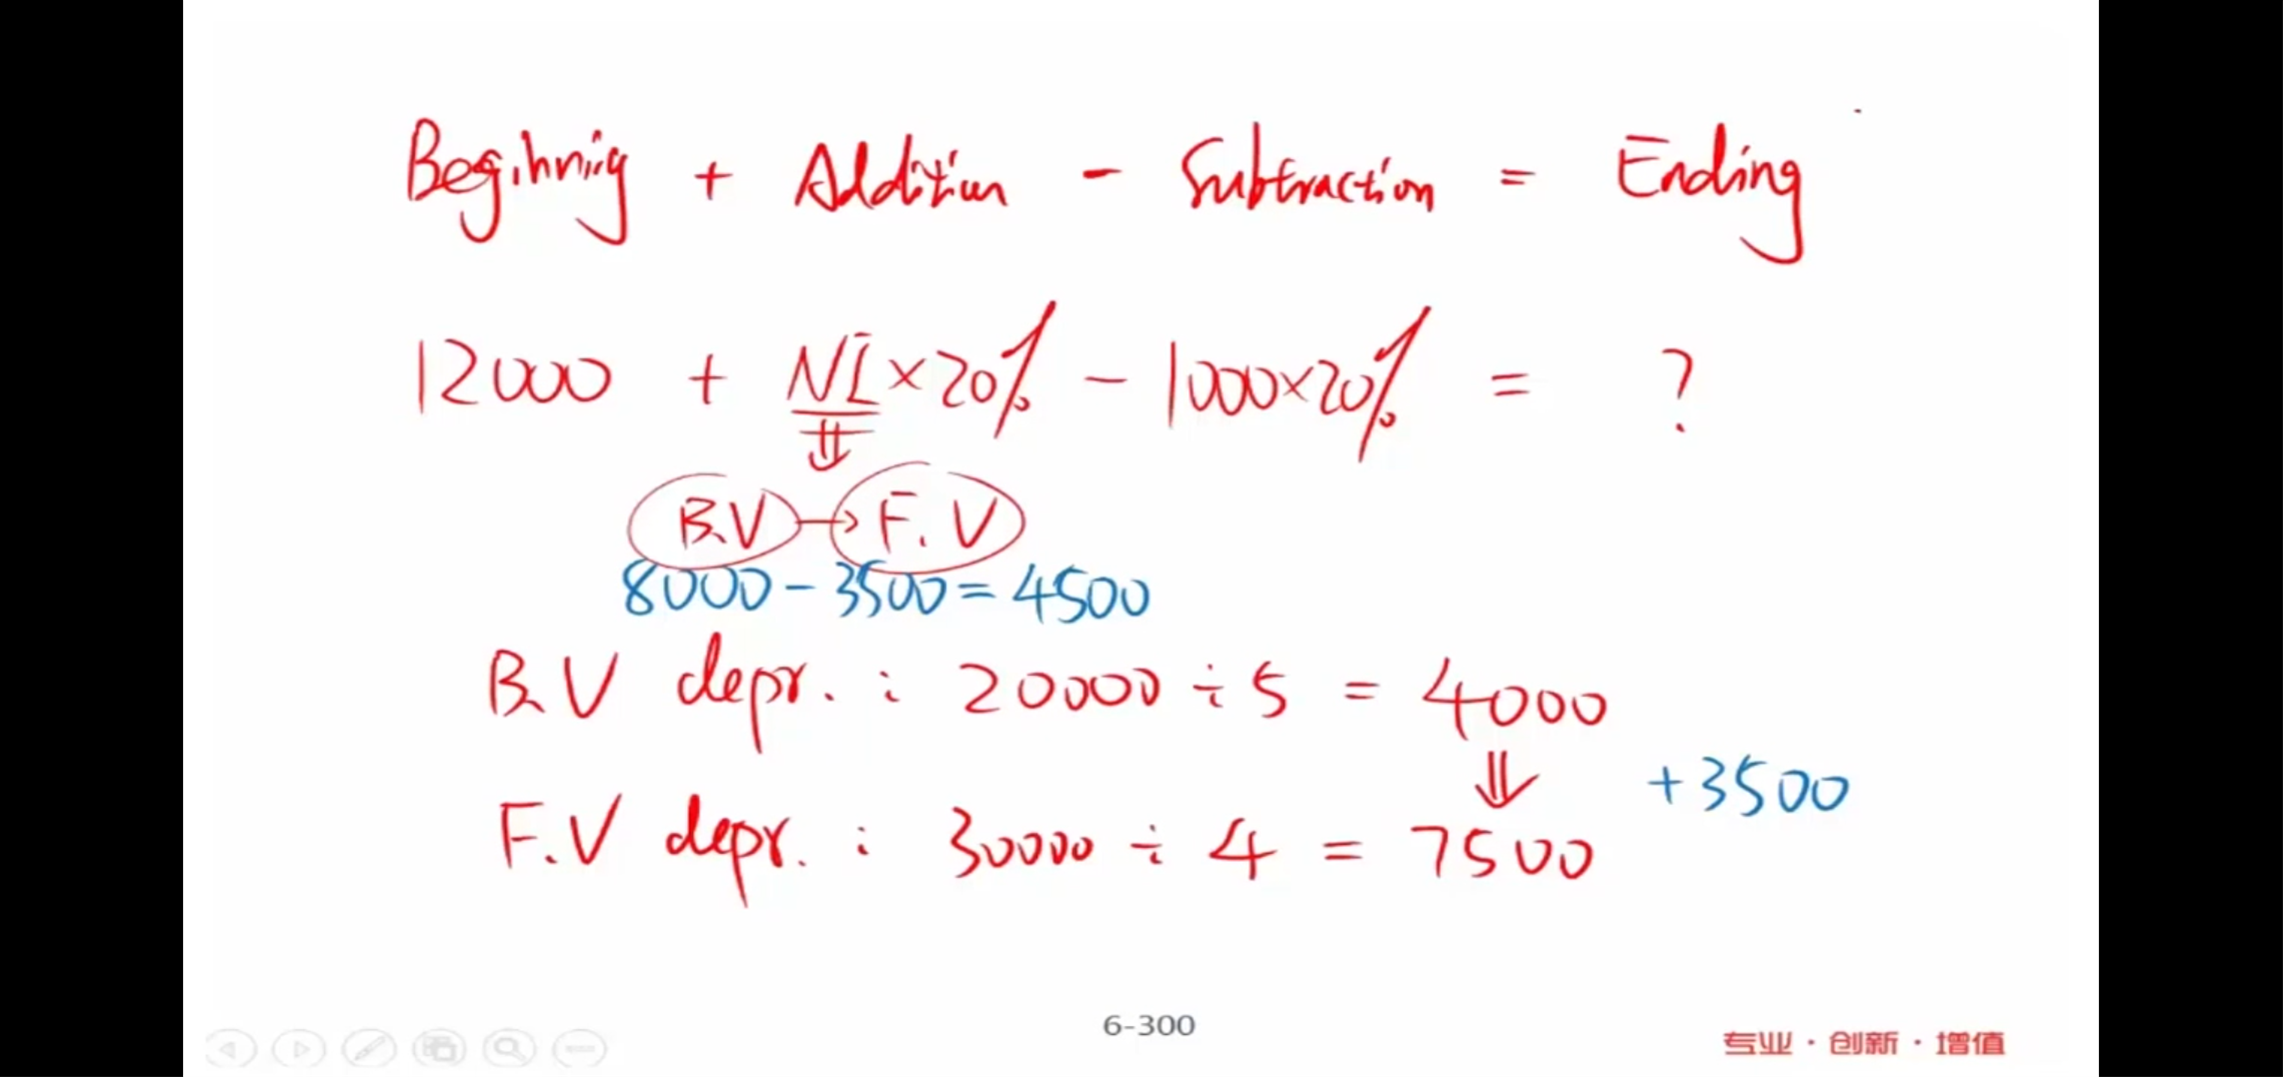 Beginning + Addition - Subtraction = Ending
12000 + NI×20% - 1000×20% = ?
B.V → F.V
8000 - 3500 = 4500
B.V depr. : 20000 ÷ 5 = 4000
+3500
F.V depr. : 30000 ÷ 4 = 7500
6-300
专业·创新·增值